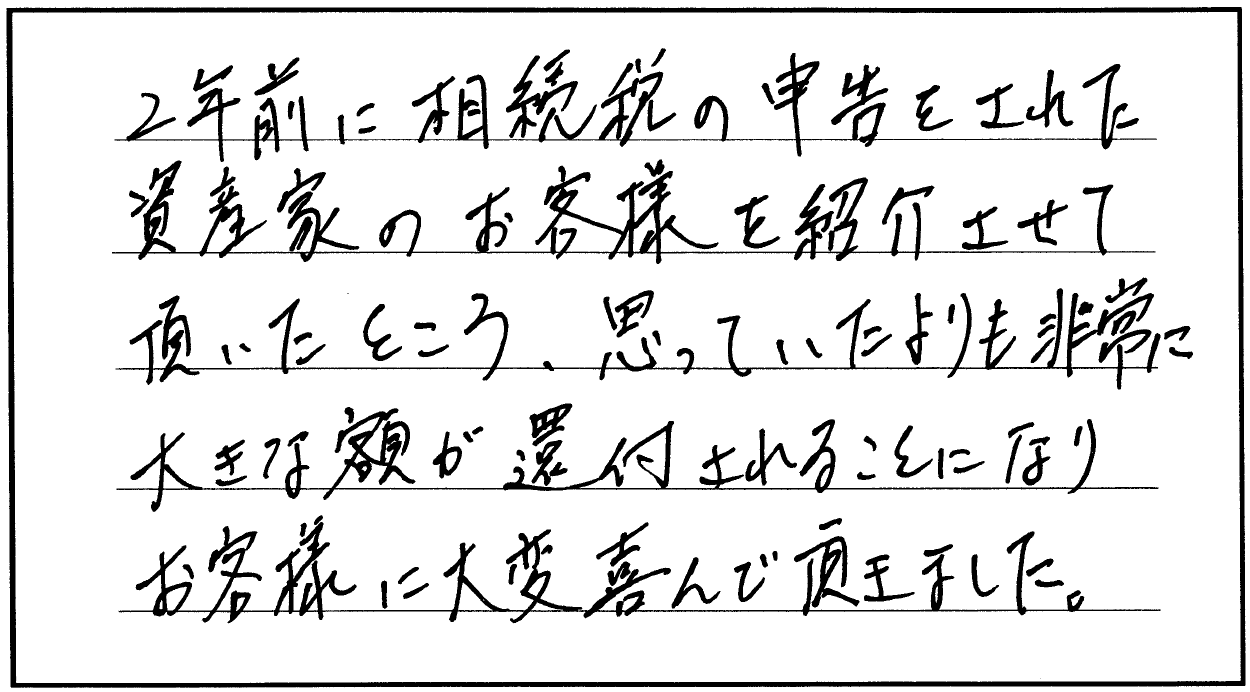 2年前に相続税の申告をされた
資産家のお客様を紹介させて
頂いたところ、思っていたよりも非常に
大きな額が還付されることになり
お客様に大変喜んで頂きました。